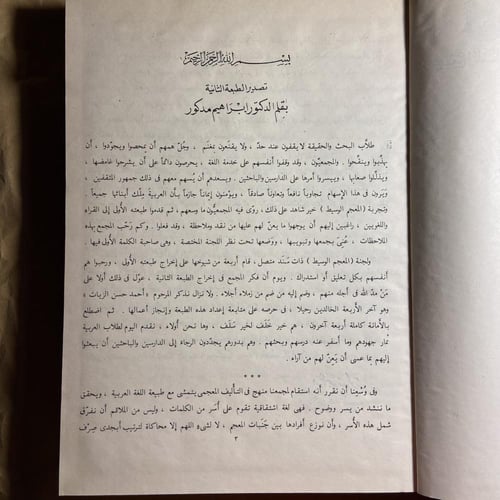 بسم الله الرحمن الرحيم
تصدير الطبعة الثانية
بقلم الدكتور ابراهيم مدكور
طلاب البحث والحقيقة لا يقفون عند حدّ ، ولا يقنعون بمغنم ، وجُلّ همهم أن يمحصوا ويجوّدوا ، أن
يهذّبوا وينقّحوا . والمجمعيّون ، وقد وقفوا أنفسهم على خدمة اللغة ، يحرصون دائماً على أن يشرحوا غامضها ،
ويذلّلوا صعابها ، وييسروا أمرها على الدارسين والباحثين . ويسعدهم أن يُسهم معهم فى ذلك جمهور المثقفين ،
ويَرون فى هذا الإسهام تجاوباً نافعاً وتعاوناً صادقاً ، ويؤمنون إيماناً جازماً بأن العربية مِلْك أبنائها جميعاً .
وتجربة (المعجم الوسيط) خير شاهد على ذلك ، روّى فيه المجمعيّون ما وسعهم ، ثم قدموا طبعته الأُولى إلى القراء
واللغويين ، راغبين إليهم أن يوجهوا ما يعنّ لهم عليها من نقد وملاحظة ، وقد فعلوا . وكم رحّب المجمع بهذه
الملاحظات ، عُنِىَ بجمعها وتبويبها ، ووضعها تحت نظر اللجنة المختصة ، وهى صاحبة الكلمة الأُولى فيها .
ولجنة (المعجم الوسيط) ذات سَنَد متصل ، قام أربعة من شيوخها على إخراج طبعته الأُولى ، ورحبوا هم
أنفسهم بكل تعليق أو استدراك . ويوم أن فكر المجمع فى إخراج الطبعة الثانية ، عوّل فى ذلك أولا على
مَنْ مدّ الله فى أجله منهم ، وضم إليه من ضم من زملاء أجلاء . ولا نزال نذكر المرحوم «أحمد حسن الزيات»
وهو آخر الأربعة الخالدين رحيلا ، فى حرصه على متابعة إعداد هذه الطبعة وإنجاز أعمالها . ثم اضطلع
بالأمانة كاملة أربعة آخرون ، هم خير خَلَف لخير سَلَف ، وها نحن أولاء ، نقدم اليوم لطلاب العربية
ثمار جهودهم وما أسفر عنه درسهم وبحثهم . وهم بدورهم يجددون الرجاء إلى الدارسين والباحثين أن يبعثوا
إليهم بما عسى أن يَعِنّ لهم من آراء .
* * *
وفى وُسْعنا أن نقرر أنه استقام لمجمعنا منهج فى التأليف المعجمى يتمشى مع طبيعة اللغة العربية ، ويحقق
ما ننشد من يسر ووضوح . فهى لغة اشتقاقية تقوم على أُسَر من الكلمات ، وليس من الملائم أن نفرّق
شمل هذه الأُسر ، وأن نوزع أفرادها بين جَنَبات المعجم ، لا لشىء اللهم إلا محاكاة لترتيب أبجدى صِرْف
٣